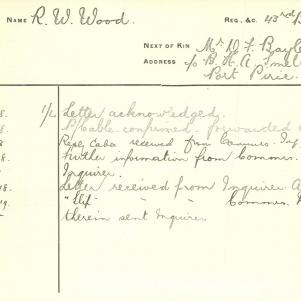 NAME R. W. Wood. REG. &C. 43rd B
NEXT OF KIN Mr. D. F. Bayl
ADDRESS c/o B. H. A. Smel
Port Pirie.
8. 1/L Letter acknowledged.
8. P/Cable confirmed. forwarded
8 Repy. Cable received from Commrs.
Further information from Commrs.
Inquirer.
18. Letter received from Inquirer
19. " " " Commrs.
therein sent Inquirer